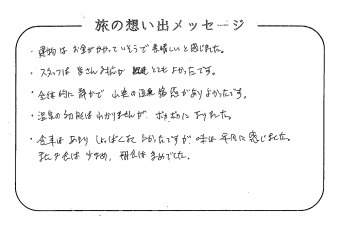 旅の想い出メッセージ
・建物は お金がかかっていそうで 素晴しいと 感じました。
・スタッフは 皆さん対応が とてもよかったです。
・全体的に静かで 山奥の温泉 感がありよかったです。
・温泉の わかりませんが、 ました。
・食事は あまり しょっぱくなく よかったですが、味は 平凡に 感じました。
また夕食は 少なめ、朝食は多めでした。